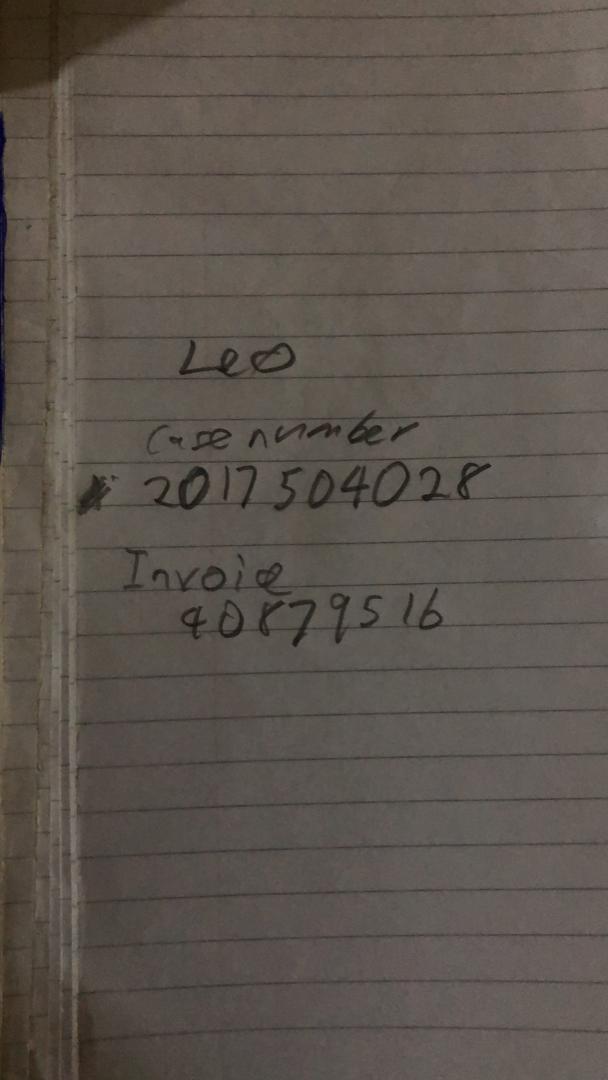 Leo
Case number
2017504028
Invoie
40879516